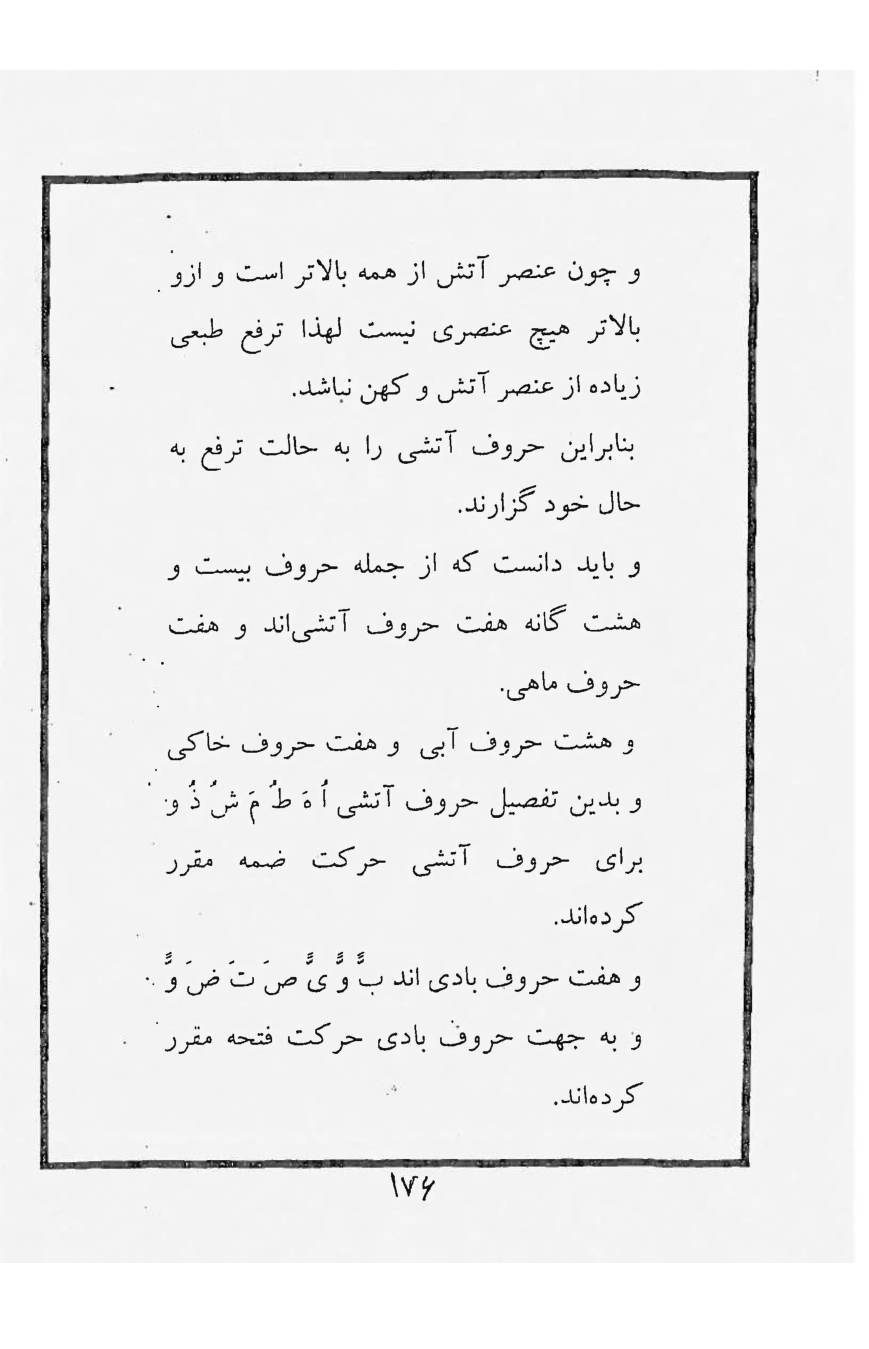 و چون عنصر آتش از همه بالاتر است و ازو
بالاتر هیچ عنصری نیست لهذا ترفع طبعی
زیاده از عنصر آتش و کهن نباشد.
بنابراین حروف آتشی را به حالت ترفع به
حال خود گزارند.
و باید دانست که از جمله حروف بیست و
هشت گانه هفت حروف آتشی‌اند و هفت
حروف ماهی.
و هشت حروف آبی و هفت حروف خاکی
و بدین تفصیل حروف آتشی اُ هَ طُ مَ شُ ذُ و
برای حروف آتشی حرکت ضمه مقرر
کرده‌اند.
و هفت حروف بادی اند بًّ وًّ ىًّ صَ تَ ضَ وًّ
و به جهت حروف بادی حرکت فتحه مقرر
کرده‌اند.
۱۷۶